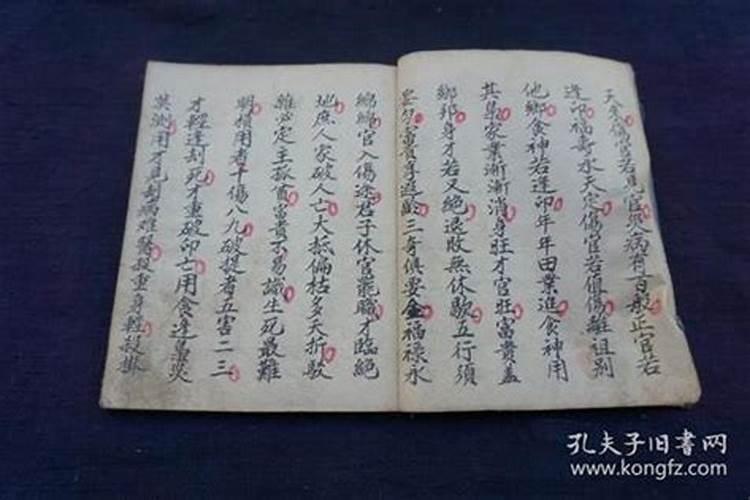 天金傷官若見官災病有百般正官若
逢印福壽永天定傷官若值傷離祖別
他鄉食神若逢卯年年田業進食神用
其梟家業漸漸消身旺才官旺富貴盖
鄉邦身才若又絕退敗無休歇五行須
富貴享遐齡三奇俱要全福祿永
綿綿官入傷途君子休官罷職才臨絕
地庶人家破人亡大抵偏枯多夭折駁
雜必定主孤貧富貴不易識生死最難
明横用者十傷八九破提者五害二三
才輕逢刧死才重破印亡用食逢梟災
莫測用才見刧病难醫提重身輕
孔夫子旧書网
www.kongfz.com